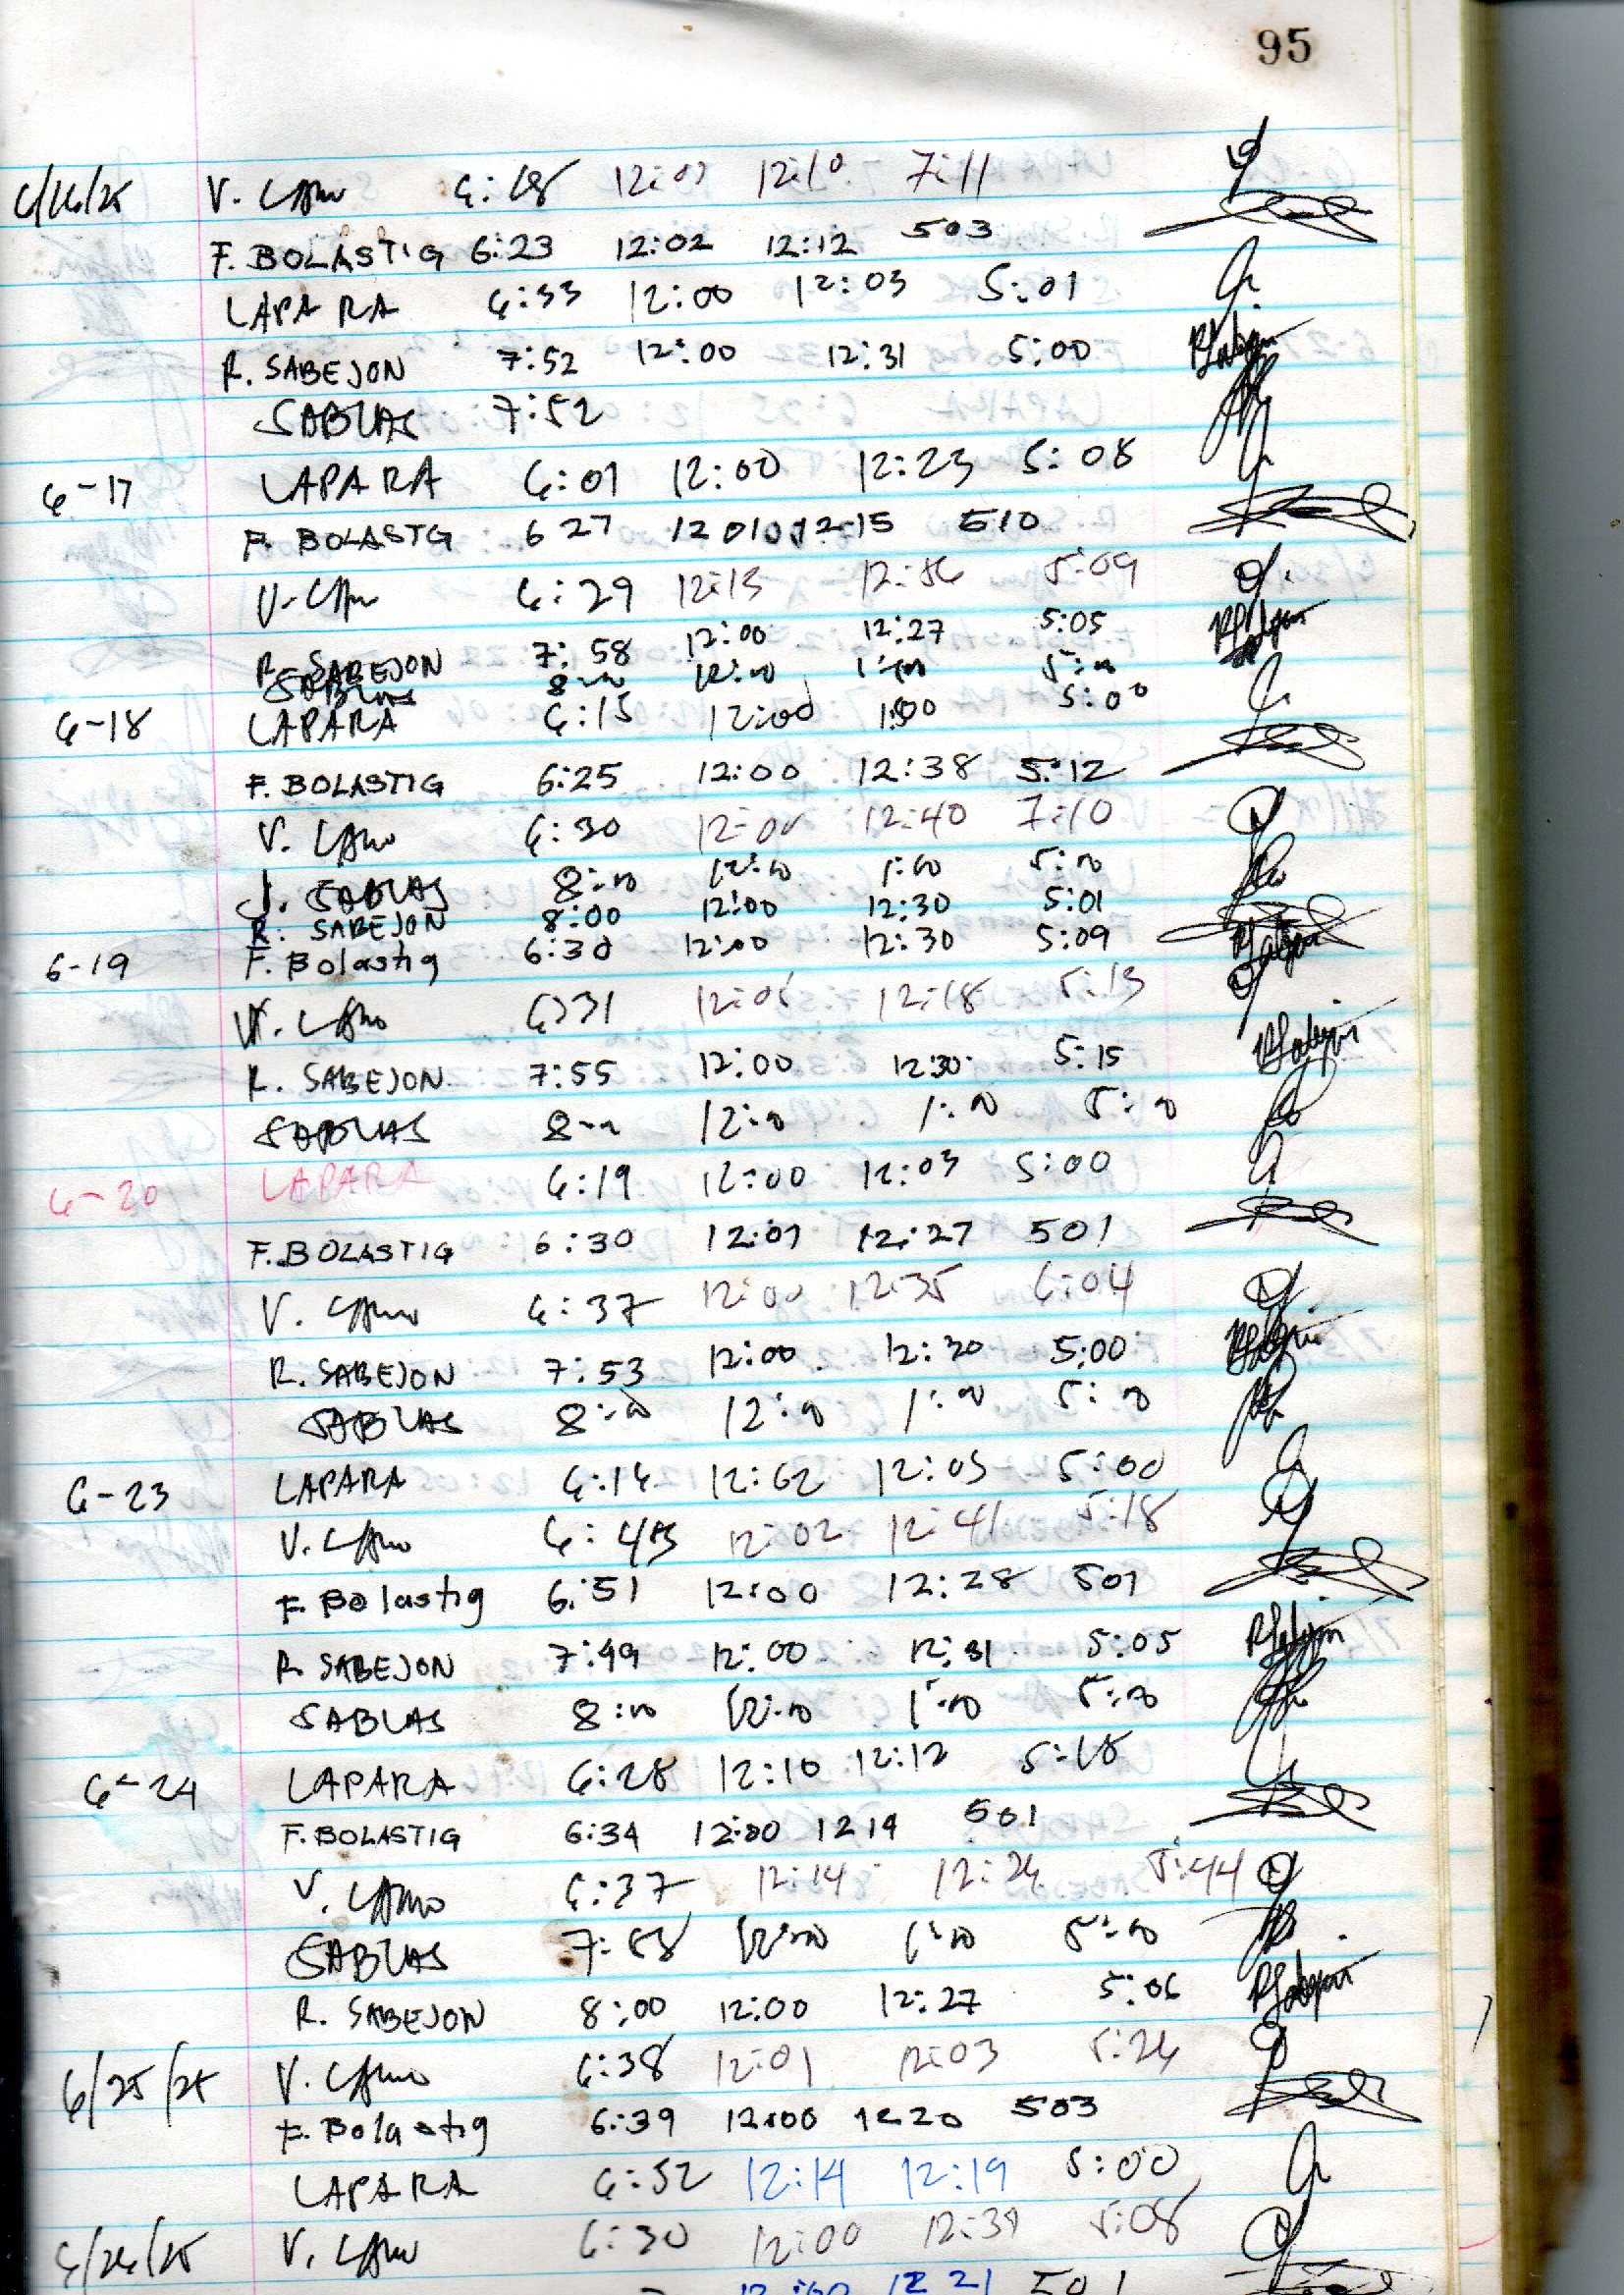 95
6/16/25 V. 6:18 12:07 12:10 7:11
F. BOLASTIG 6:23 12:02 12:12 503
LAPARA 6:33 12:00 12:03 5:01
R. SABEJON 7:52 12:00 12:31 5:00
SABLAS 7:52
6-17 LAPARA 6:01 12:00 12:23 5:08
F. BOLASTG 6 27 12 01 12:15 510
V. 6:29 12:13 12:56 5:09
R. SABEJON 7:58 12:00 12:27 5:05
SABLAS 8:00 12:00 1:00 5:00
6-18 LAPARA 6:15 12:00 1:00 5:00
F. BOLASTIG 6:25 12:00 12:38 5:12
V. 6:30 12:00 12:40 7:10
J. SABLAS 8:00 12:00 1:00 5:00
R. SABEJON 8:00 12:00 12:30 5:01
6-19 F. Bolastig 6:30 12:00 12:30 5:09
V. 6:31 12:05 12:18 5:13
R. SABEJON 7:55 12:00 1230 5:15
SABLAS 8:00 12:00 1:00 5:00
6-20 LAPARA 6:19 12:00 12:03 5:00
F. BOLASTIG 6:30 12:01 12:27 501
V. 6:37 12:00 12:35 6:04
R. SABEJON 7:53 12:00 12:30 5:00
SABLAS 8:00 12:00 1:00 5:00
6-23 LAPARA 6:14 12:02 12:05 5:00
V. 12:02 12:41 5:18
F. Bolastig 6:51 12:00 12:28 501
R. SABEJON 7:49 12:00 12:31 5:05
SABLAS 8:00 12:00 1:00 5:00
6-24 LAPARA 6:28 12:10 12:12 5:18
F. BOLASTIG 6:34 12:00 12 14 501
V. 6:37 12:14 12:24 5:44
SABLAS 7:58 12:00 1:00 5:00
R. SABEJON 8:00 12:00 12:27 5:06
6/25/25 V. 6:38 12:01 12:03 5:24
F. Bolastig 6:39 12:00 12 20 503
LAPARA 6:52 12:14 12:19 5:00
6/26/25 V. 6:30 12:00 12:39 5:08
12:00 12 21 501